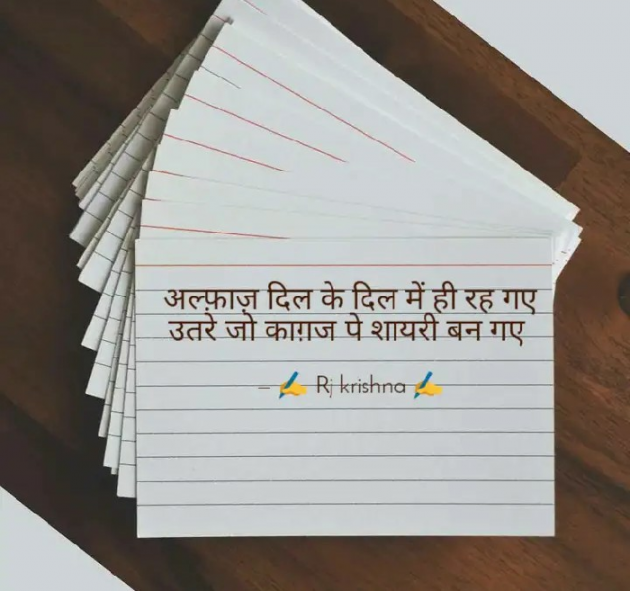 अल्फ़ाज़ दिल के दिल में ही रह गए
उतरे जो काग़ज पे शायरी बन गए
– ✍️ Rj krishna ✍️